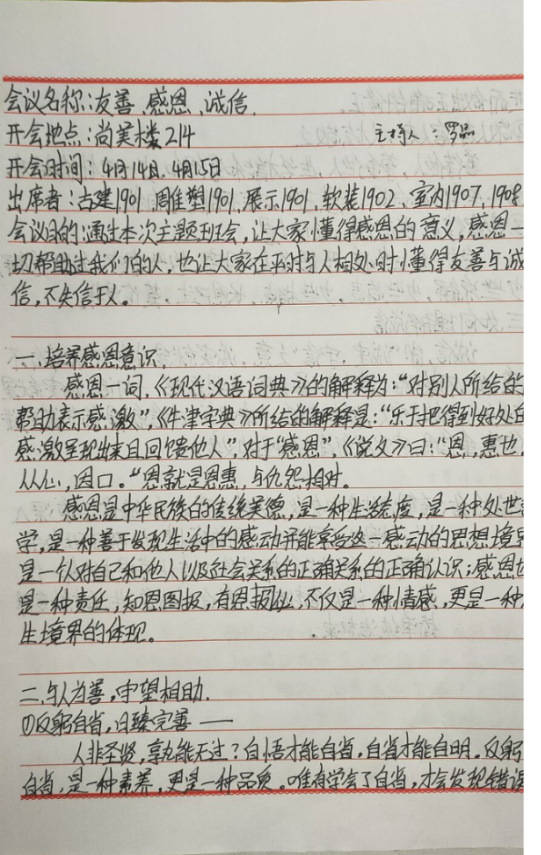 会议名称:友善、感恩、诚信.
开会地点:尚美楼214 主持人:罗品
开会时间:4月14日、4月15日
出席者:古建1901、雕塑1901、展示1901、软装1902、室内1907、1908
会议目的:通过本次主题班会,让大家懂得感恩的意义,感恩一
切帮助过我们的人,也让大家在平时与人相处时懂得友善与诚
信,不失信于人。
一、培养感恩意识.
感恩一词,《现代汉语词典》的解释为:“对别人所给的
帮助表示感激”,《牛津字典》所给的解释是:“乐于把得到好处的
感激呈现出来且回馈他人”对于“感恩”《说文》曰:“恩,惠也,
从心,因口。“恩就是恩惠,与仇怨相对.
感恩是中华民族的传统美德,是一种生活态度,是一种处世
学,是一种善于发现生活中的感动并能享受这一感动的思想境界
是一个人对自己和他人以及社会关系的正确关系的正确认识;感恩也
是一种责任,知恩图报,有恩报,不仅是一种情感,更是一种
生境界的体现。
二.与人为善,守望相助.
①反躬自省,日臻完善——
人非圣贤,孰能无过?自悟才能自省,自省才能自明.反躬
自省,是一种素养,更是一种品质。唯有学会了自省,才会发现错误